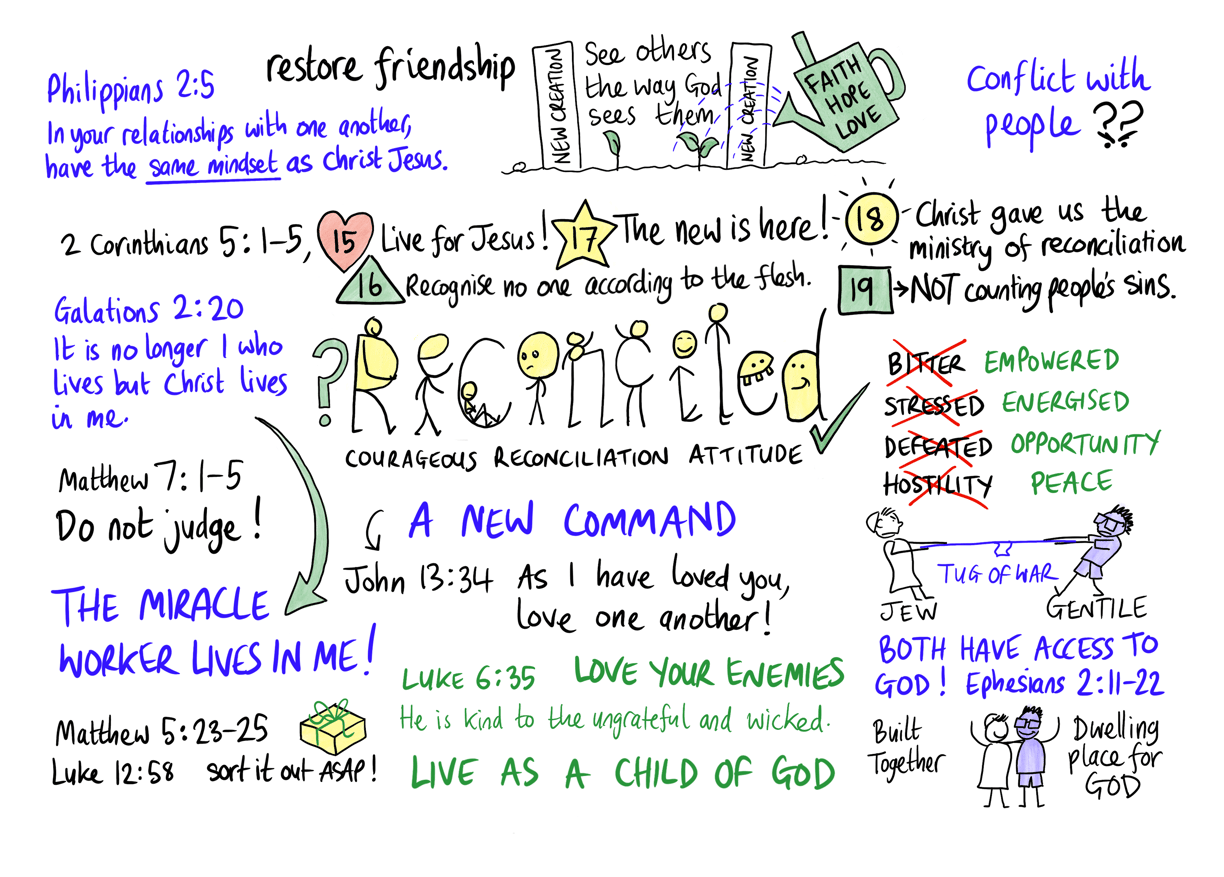 Philippians 2:5
In your relationships with one another,
have the same mindset as Christ Jesus.
restore friendship
NEW CREATION
See others
the way God
sees them
NEW CREATION
FAITH
HOPE
LOVE
Conflict with
people ??
2 Corinthians 5:1-5,
15 Live for Jesus!
16 Recognise no one according to the flesh.
17 The new is here!
18 Christ gave us the
ministry of reconciliation
19 → NOT counting people's sins.
Galations 2:20
It is no longer I who
lives but Christ lives
in me.
? Reconciled
COURAGEOUS RECONCILIATION ATTITUDE ✓
BITTER EMPOWERED
STRESSED ENERGISED
DEFEATED OPPORTUNITY
HOSTILITY PEACE
Matthew 7:1-5
Do not judge!
A NEW COMMAND
John 13:34 As I have loved you,
love one another!
TUG OF WAR
JEW
GENTILE
THE MIRACLE
WORKER LIVES IN ME!
BOTH HAVE ACCESS TO
GOD! Ephesians 2:11-22
Luke 6:35 LOVE YOUR ENEMIES
He is kind to the ungrateful and wicked.
LIVE AS A CHILD OF GOD
Matthew 5:23-25
Luke 12:58 sort it out ASAP!
Built
Together
Dwelling
place for
GOD